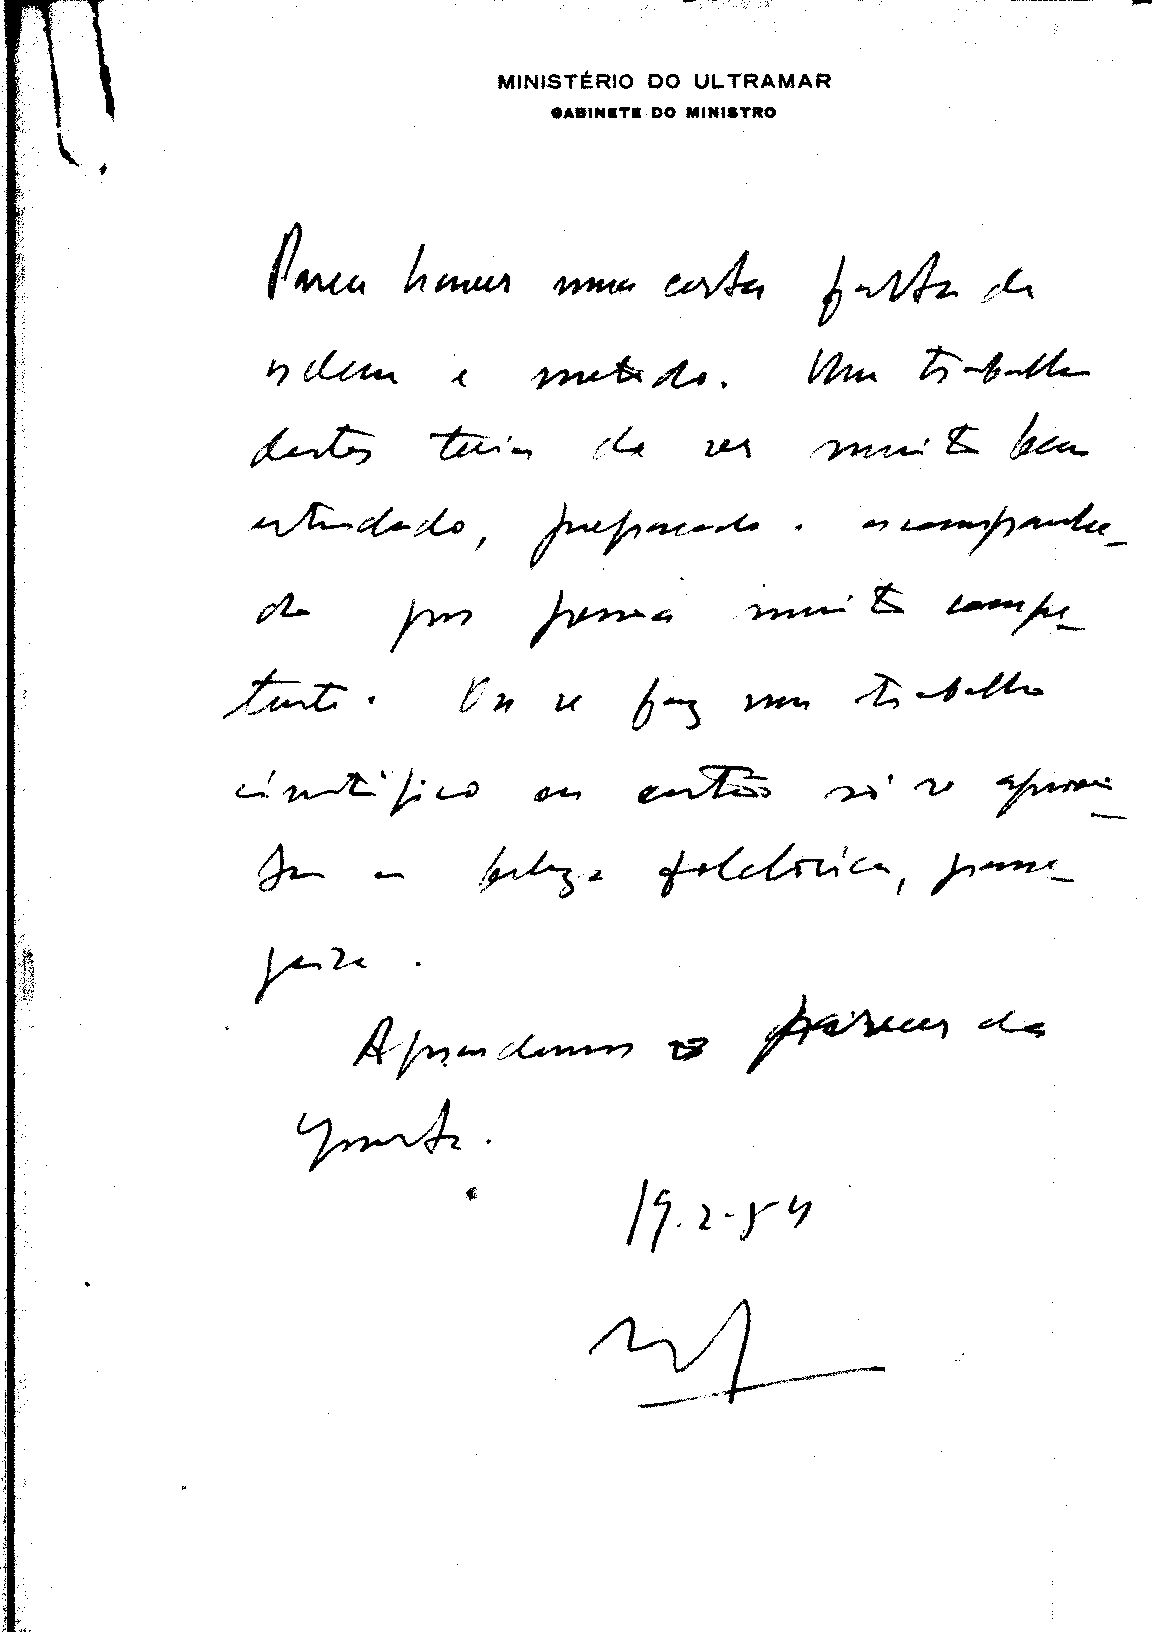 MINISTÉRIO DO ULTRAMAR
GABINETE DO MINISTRO
Parece haver uma certa falta de
ordem e metodo. Um trabalho
destes teria de ser muito bem
estudado, preparado e acompanha-
do por pessoa muito compe-
tente. Ou se faz um trabalho
científico ou então só se aprovei-
ta a beleza folclórica,
Aguardemos o parecer da
Junta.
19.2-54